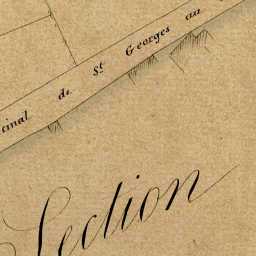 cinal de St Georges au
Section